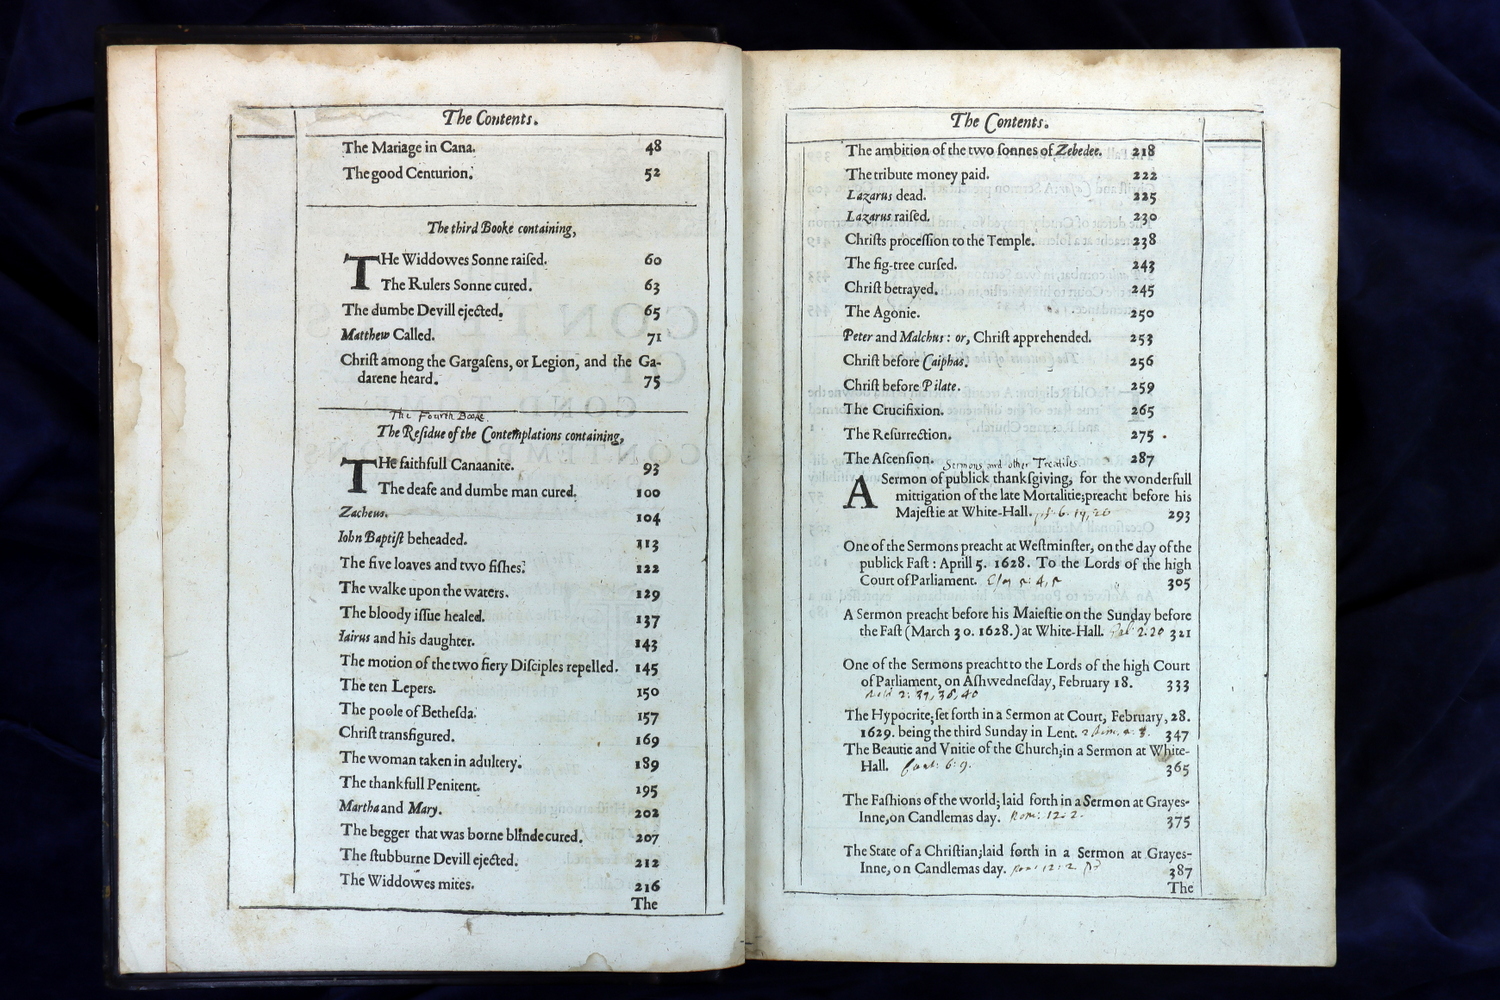 The Contents.
The Mariage in Cana. 48
The good Centurion. 52
The third Booke containing,
THe Widdowes Sonne raiſed. 60
The Rulers Sonne cured. 63
The dumbe Devill ejected. 65
Matthew Called. 71
Chriſt among the Gargaſens, or Legion, and the Ga-
darene heard. 75
The Fourth Booke
The Reſidue of the Contemplations containing,
THe faithfull Canaanite. 93
The deafe and dumbe man cured. 100
Zacheus. 104
Iohn Baptiſt beheaded. 113
The five loaves and two fiſhes. 122
The walke upon the waters. 129
The bloody iſſue healed. 137
Iairus and his daughter. 143
The motion of the two fiery Diſciples repelled. 145
The ten Lepers. 150
The poole of Betheſda. 157
Chriſt transfigured. 169
The woman taken in adultery. 189
The thankfull Penitent. 195
Martha and Mary. 202
The begger that was borne blinde cured. 207
The ſtubburne Devill ejected. 212
The Widdowes mites. 216
The
The Contents.
The ambition of the two ſonnes of Zebedee. 218
The tribute money paid. 222
Lazarus dead. 225
Lazarus raiſed. 230
Chriſts proceſſion to the Temple. 238
The fig-tree curſed. 243
Chriſt betrayed. 245
The Agonie. 250
Peter and Malchus: or, Chriſt apprehended. 253
Chriſt before Caiphas. 256
Chriſt before Pilate. 259
The Crucifixion. 265
The Reſurrection. 275
The Aſcenſion. 287
Sermons and other Treatiſes
A Sermon of publick thankſgiving, for the wonderfull
mittigation of the late Mortalitie; preacht before his
Majeſtie at White-Hall. 293
One of the Sermons preacht at Weſtminſter, on the day of the
publick Faſt: Aprill 5. 1628. To the Lords of the high
Court of Parliament. 305
A Sermon preacht before his Maieſtie on the Sunday before
the Faſt (March 30. 1628.) at White-Hall. 2:20 321
One of the Sermons preacht to the Lords of the high Court
of Parliament, on Aſhwedneſday, February 18. 333
The Hypocrite; ſet forth in a Sermon at Court, February, 28.
1629. being the third Sunday in Lent. 347
The Beautie and Vnitie of the Church; in a Sermon at White-
Hall. 6:9. 365
The Faſhions of the world; laid forth in a Sermon at Grayes-
Inne, on Candlemas day. Rom: 12. 2. 375
The State of a Chriſtian; laid forth in a Sermon at Grayes-
Inne, on Candlemas day. Rom: 12:2. 387
The